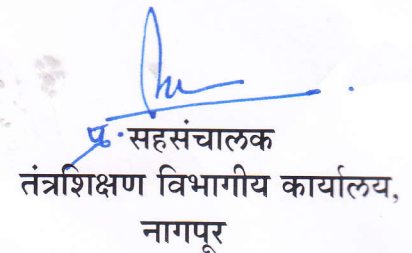 प्र. सहसंचालक
तंत्रशिक्षण विभागीय कार्यालय,
नागपूर